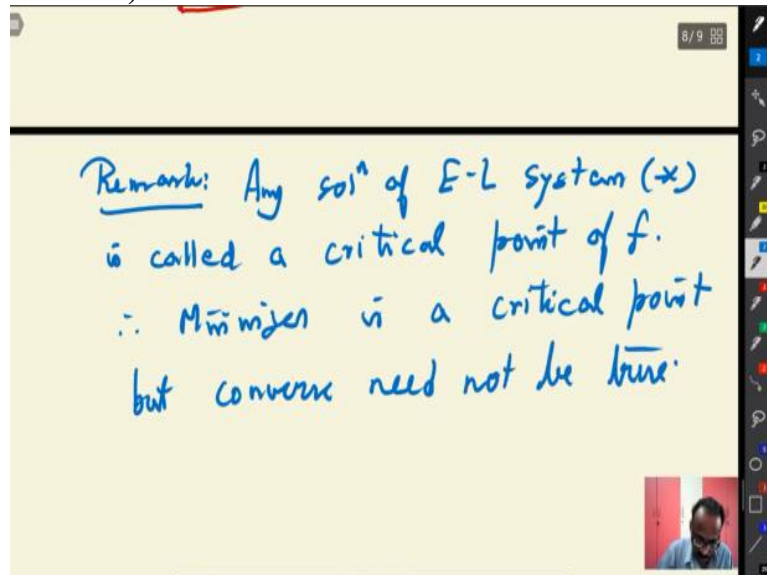 8/9
Remark: Any solⁿ of E-L system (*)
is called a critical point of f.
∴ Minimizer is a critical point
but converse need not be true.